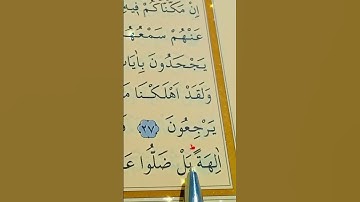 اِنْ مَكَّنَّاكُمْ فٖيهِ
عَنْهُمْ سَمْعُهُمْ
يَجْحَدُونَ بِاٰيَاتِ
وَلَقَدْ اَهْلَكْنَا مَا
يَرْجِعُونَ ﴿٢٧﴾
اٰلِهَةً بَلْ ضَلُّوا عَنْ